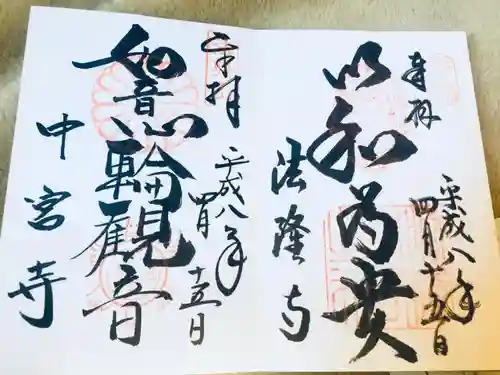 奉拝
平成八年
四月十五日
以和為貴
法隆寺
奉拝
平成八年
四月
十五日
如意輪観音
中宮寺